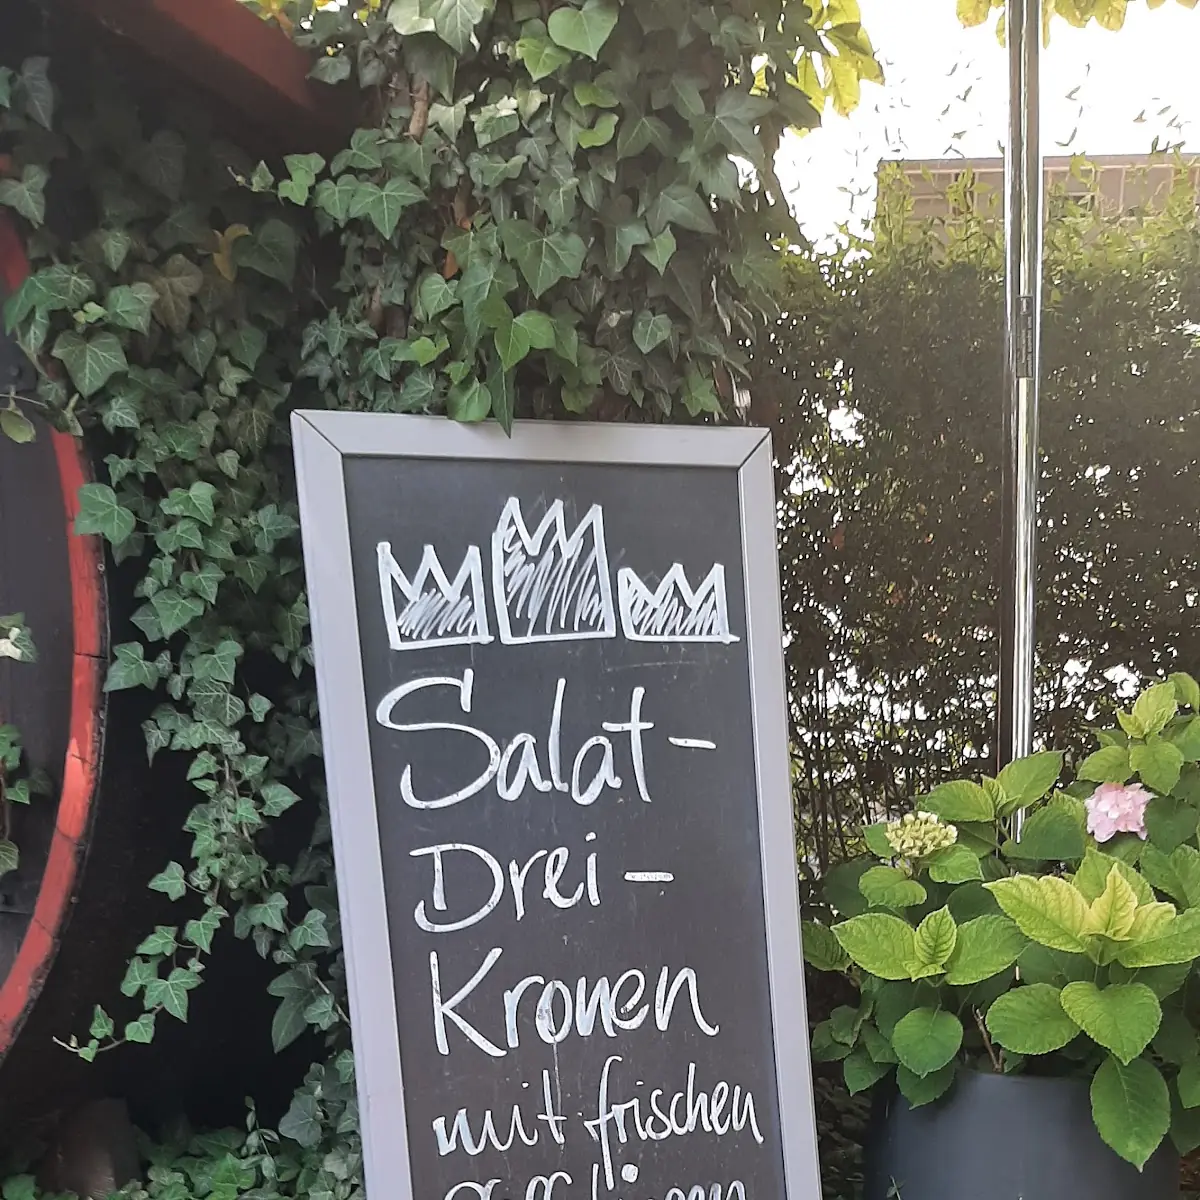 Salat-
Drei-
Kronen
mit frischen